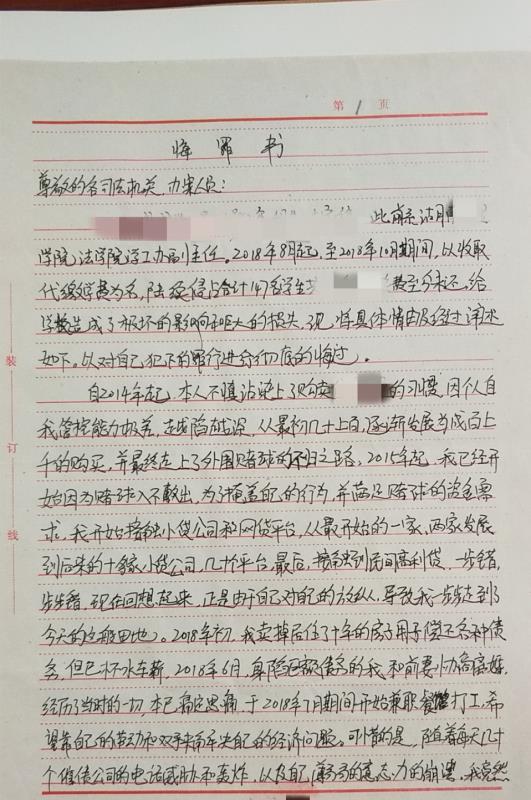 第 1 页
悔 罪 书
尊敬的各司法机关、办案人员:
学院法学院学工办副主任。2018年8月起,至2018年10月期间,以收取
代缴学费为名,陆续侵占合计147名学生 费至今未还,给
学校造成了极坏的影响和巨大的损失,现将具体情由及经过详述
如下。以对自己犯下的罪行进行彻底的悔过。
自2014年起,本人不慎沾染上了购买 的习惯,因个人自
我管控能力极差,走线陷越深,从最初几十上百,逐渐发展到成百上
千的购买,并最终走上了外围赌球的不归之路。2015年起,我已经开
始因为赌球入不敷出,为了掩盖自己的行为,并满足赌球的资金需
求,我开始接触小贷公司和网贷平台,从最开始的一家、两家发展
到后来的十余家小贷公司,几十个平台,最后,接触到民间高利贷,一步错,
步步错,现在回想起来,正是由于自己对自己的放纵,导致我一步步走到了
今天的这般田地。2018年初,我卖掉居住了十年的房子用于偿还各种债
务,但已杯水车薪,2018年6月,身陷巨额债务的我,和前妻协商离婚,
经历了当时的一切,本已痛定思痛,于2018年7月期间开始兼职 打工,希
望靠自己的劳动和双手来解决自己的经济问题。可惜的是,随着每天几十
个催债公司的电话威胁和轰炸,以及自 的意志力的崩溃,我竟然
裝
訂
線